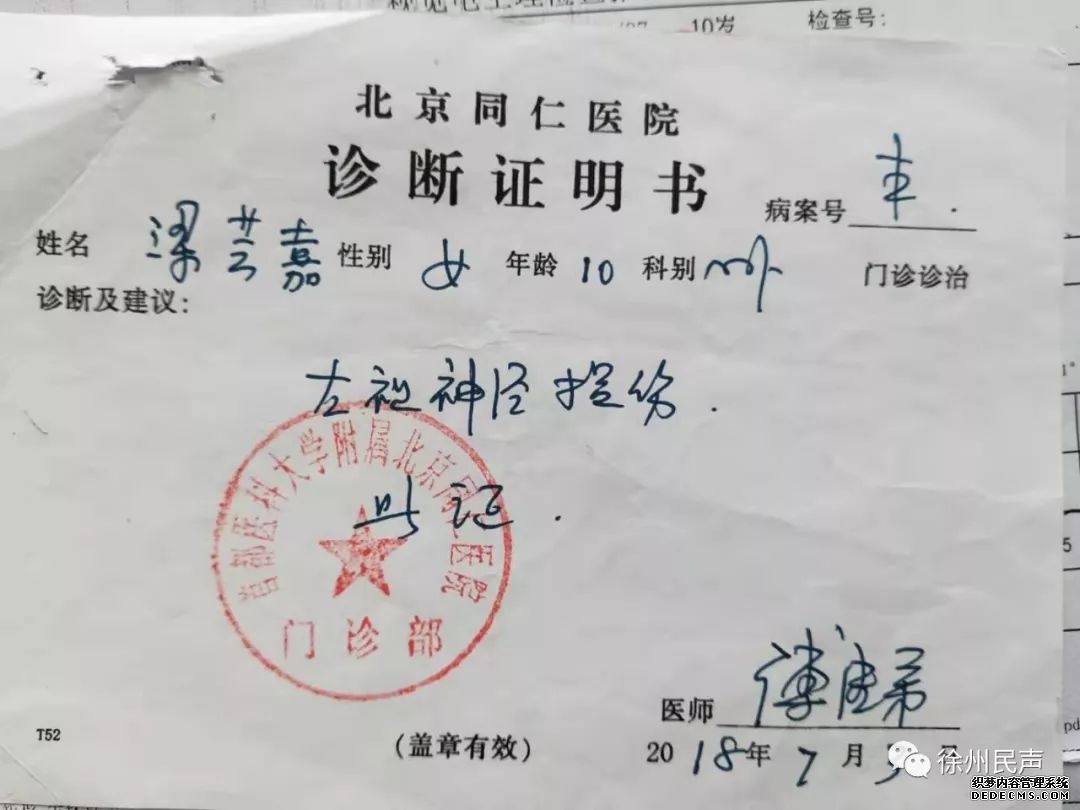 10岁 检查号:
北京同仁医院
诊断证明书
病案号
姓名 梁芸嘉 性别 女 年龄 10 科别 门诊诊治
诊断及建议:
左视神经损伤.
此证.
首都医科大学附属北京同仁医院
门诊部
医师
T52 (盖章有效) 2018年7月5日
徐州民声
织梦内容管理系统
DEDECMS.COM